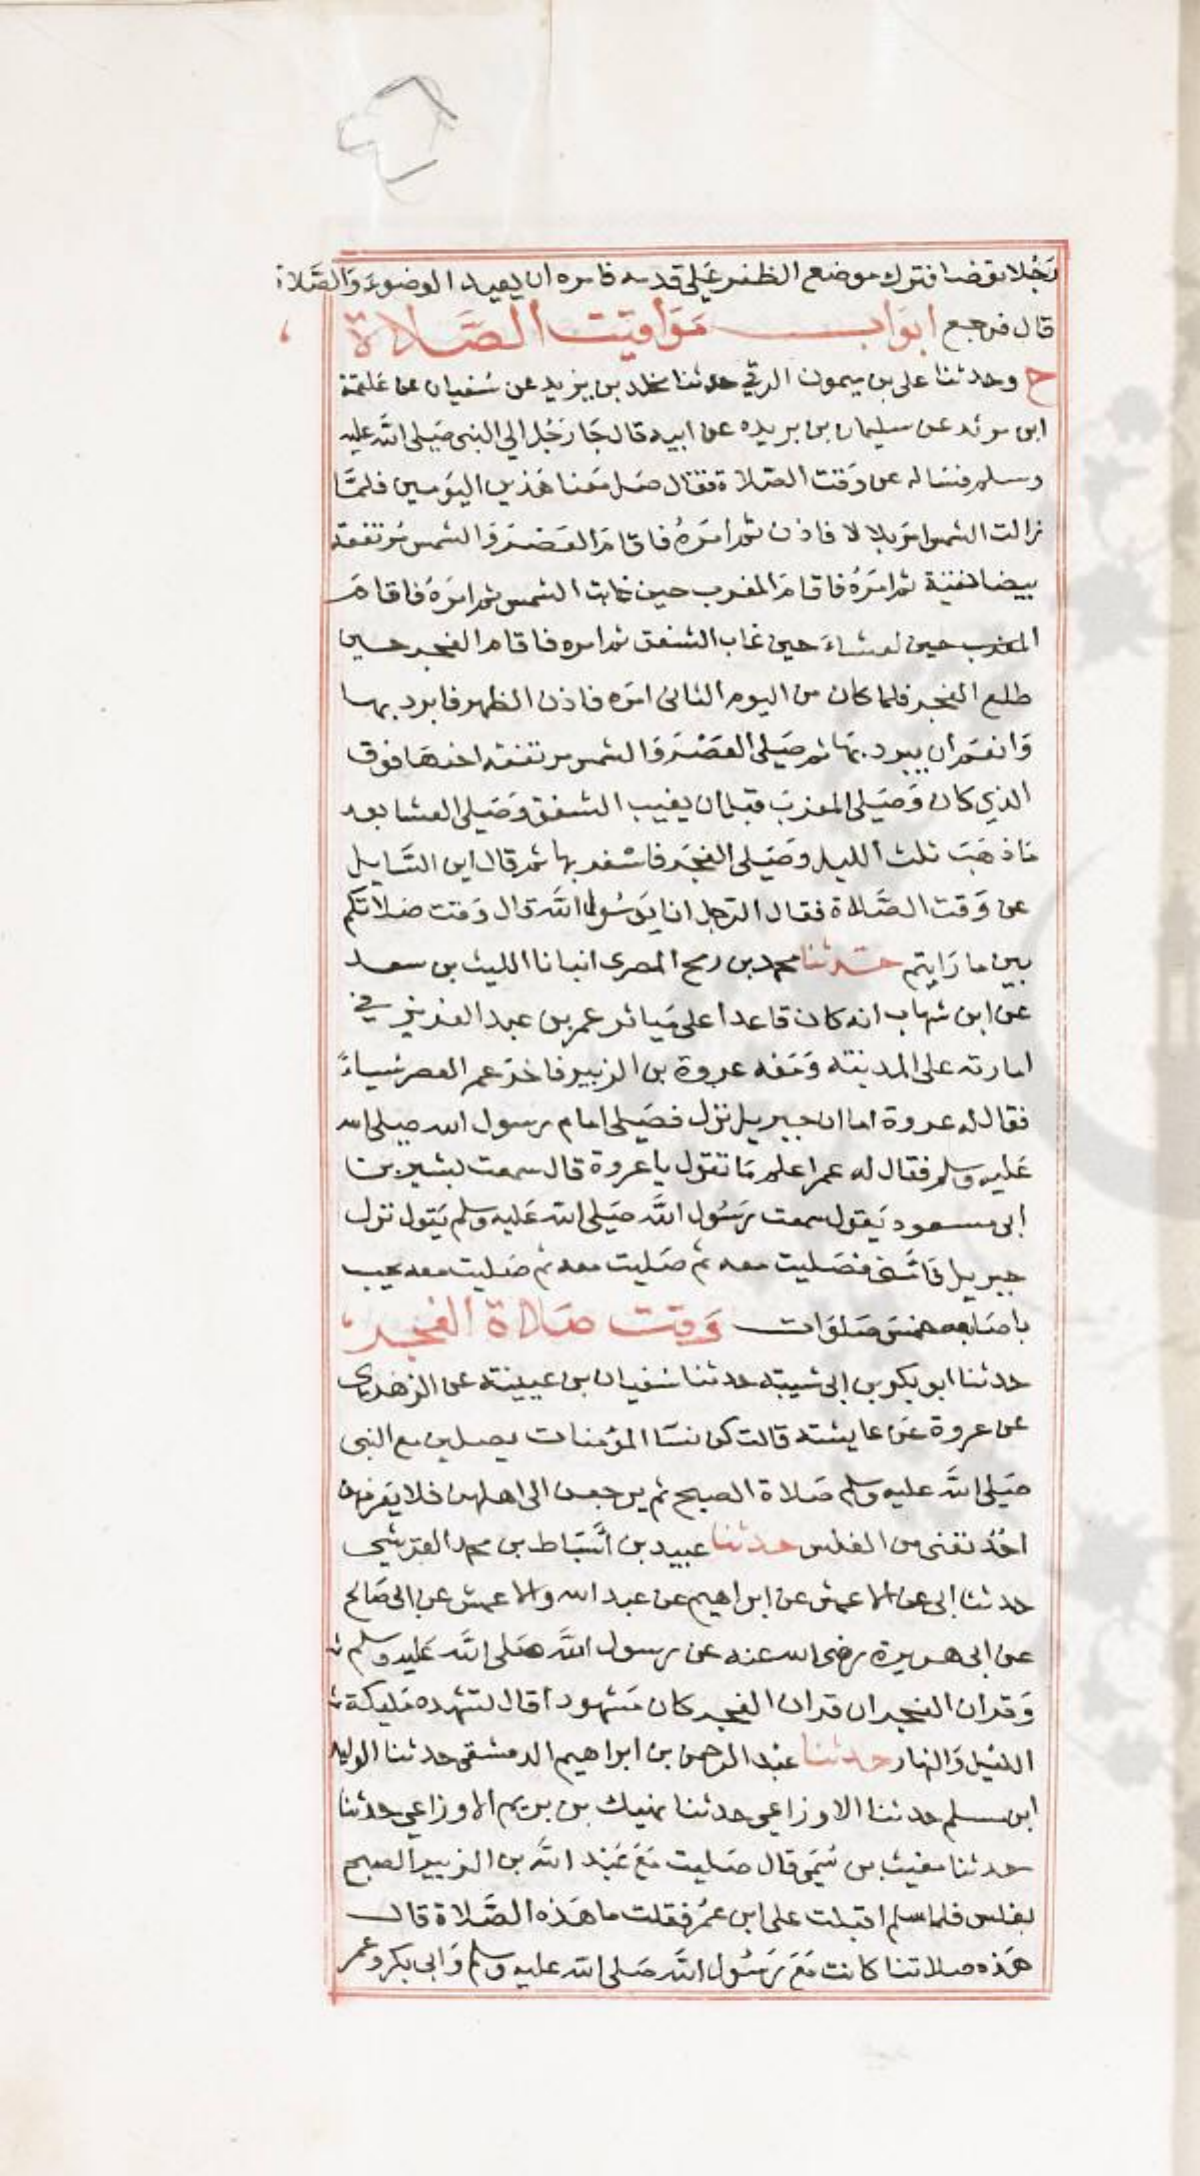 رَجُلا توضا فترك موضع الظفر عَلى قدمه فامره ان يعيد الوضوءَ وَالصَّلاة
قال فرجع ابوَاب مَوَاقيت الصَّلاة
ح وحدثنا على بن ميمون الرقي حدثنا مخلد بن يزيد عن سُفيان عن عَلقمة
ابن مرثد عن سليمان بن بريده عن ابيه قال جَا رَجُل الي النبى صَلى الله عليه
وسلم فسَاله عن وَقت الصَلاة فقال صَل مَعنا هَذين اليَومين فلمَّا
زالت الشمس امَر بلالا فاذن ثم امَرهُ فاقامَ العَصْرَ وَالشمس مُرتفعة
بيضا نقية ثم امَرَهُ فاقامَ المغرب حين غابت الشمس ثم امَرَهُ فاقامَ
المغرب حين لعشاءَ حين غاب الشفق ثم امره فاقام الفجر حين
طلع الفجر فلما كان من اليوم الثانى امَره فاذن الظهر فابرد بها
وَانعَم ان يبرد بهَا ثم صَلى العَصْرَ وَالشمس مرتفعه اخرهَا فوق
الذي كان وَصَلى المغربَ قبل ان يغيب الشفق وَصَلى العشا بعد
مَا ذهَبَ ثلث الليل وَصَلى الفجَر فاسْفر بها ثم قال اين السَّايل
عن وَقت الصَّلاة فقال الرَّجل انا يَرسُول اللَّه قال وَقت صَلاتكم
بين ما رَايتم حَدثنا محمد بن رمح المصرى انبانا الليث بن سعد
عن ابن شهاب انه كان قاعدا على مَياثر عمر بن عبد العزيز في
امارته على المدينة وَمَعه عروة بن الزبير فاخرَ عمر العصر شياءً
فقال له عروة اما ان جبريل نزل فصَلى امام رسول الله صلى الله
عَليه وسلم فقال له عمر اعلم مَا تقول يا عروة قال سمعت بشير بن
ابى مسعود يَقول سمعت رَسُول اللَّه صَلى الله عَليه وسلم يَقول نزل
جبريل فَامَّنى فصَليت معه ثم صَليت معه ثم صَليت معه يحسب
باصَابعه خمسَ صَلوَات وَقت صَلاة الفجر
حدثنا ابو بكر بن ابى شيبة حدثنا سفيان بن عيينة عن الزهرى
عن عروة عَن عايشة قالت كن نسَا المؤمنات يصلين مع النبى
صَلى اللَّه عليه وسلم صَلاة الصبح ثم يرجعن الى اهلهن فلا يَعرفهن
احَدٌ تعنى من الغلس حدثنا عبيد بن اسْبَاط بن محمد القرشى
حدثنا ابى عن الاعمش عن ابراهيم عن عبد الله والاعمش عن ابى صَالح
عن ابى هريرة رضى الله عنه عن رسول اللَّه صَلى اللَّه عَليه وسلم
وَقران الفجر ان قران الفجر كان مَشهودا قال تشهده مَليكة
الليْل وَالنهار حدثنا عبْد الرحمن بن ابراهيم الدمشقى حدثنا الوليد
ابن مسلم حدثنا الاوزاعي حدثنا نهيك بن يريم الاوزاعي حدثنا
حدثنا مغيث بن سُمَى قال صَليت مَعَ عَبْد اللَّه بن الزبير الصبح
بغلس فلما سلم اقبلت على ابن عمُر فقلت ما هَذه الصَّلاة قال
هَذه صلاتنا كانت مَعَ رَسُول اللَّه صَلى الله عليه وسلم وَابى بكر وعمر